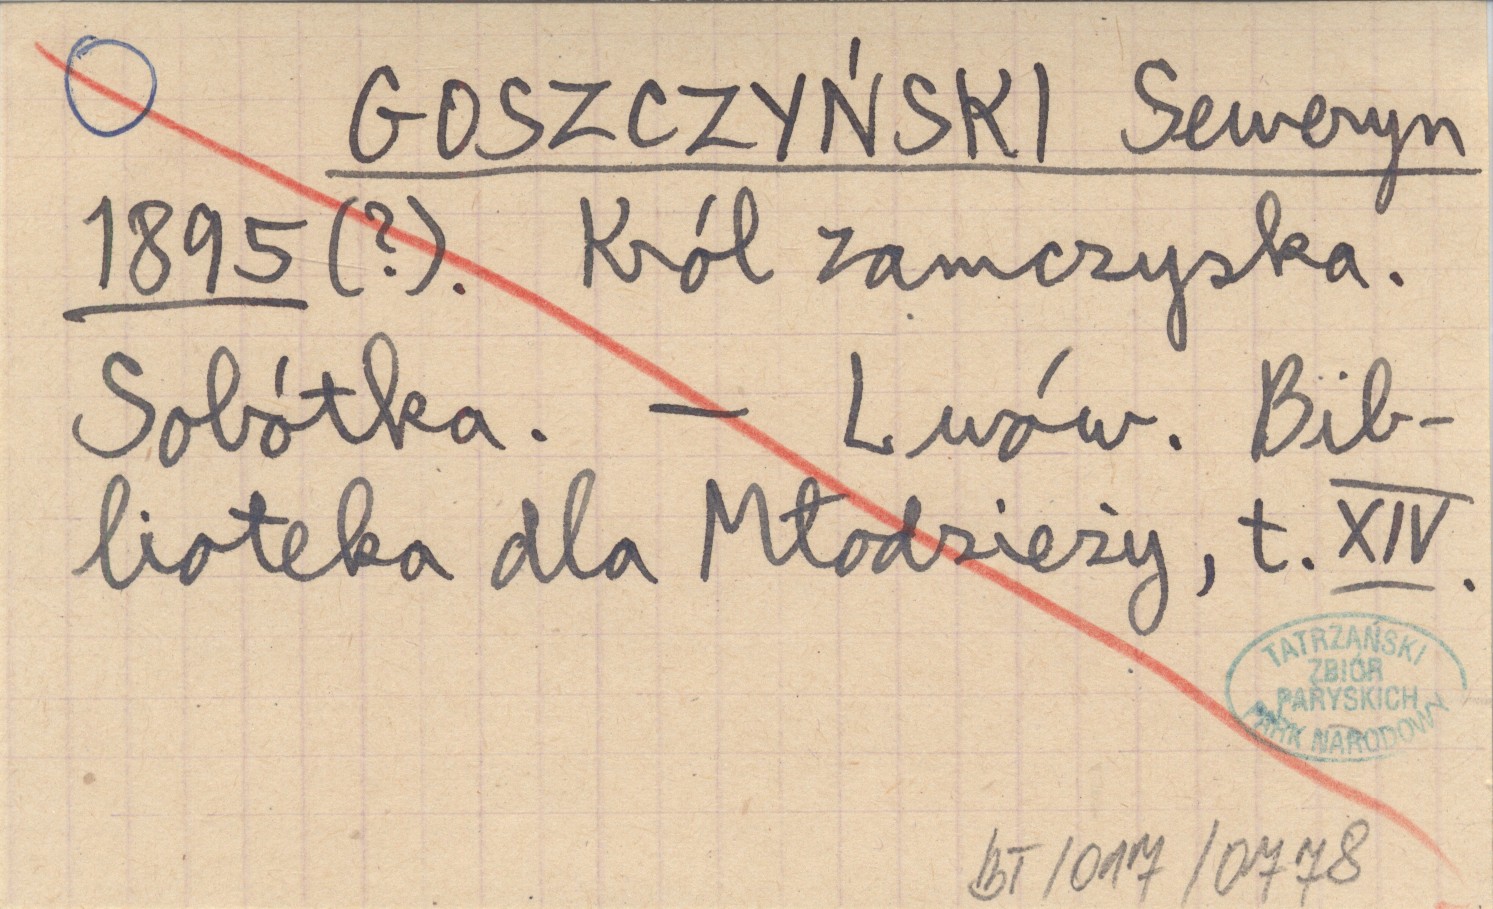 GOSZCZYŃSKI Seweryn
1895(?). Król zamczyska.
Sobótka. — Lwów. Bib-
lioteka dla Młodzieży, t. XIV.
TATRZAŃSKI
ZBIÓR
PARYSKICH
PARK NARODOWY
BT/017/0778